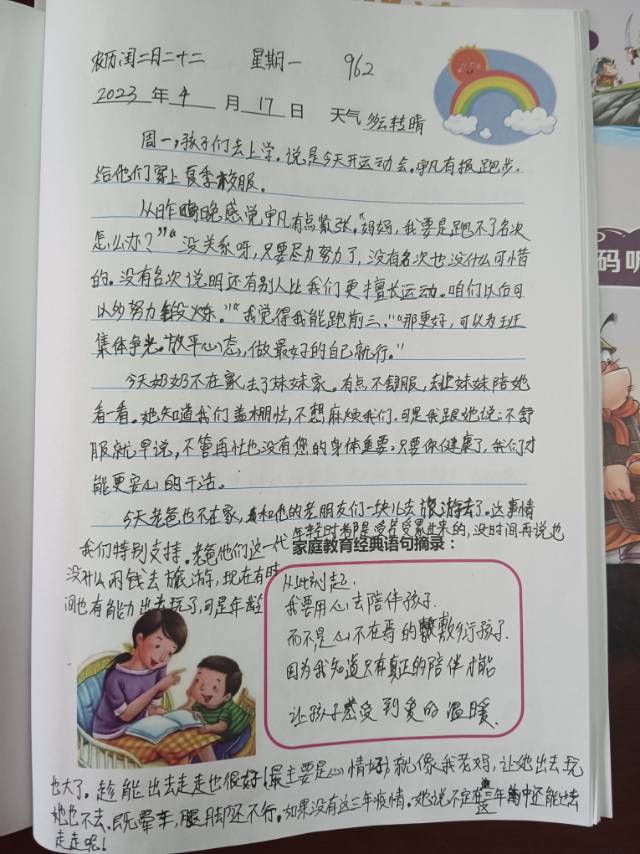 农历闰二月二十二 星期一 962
2023 年 4 月 17 日 天气 多云转晴
周一,孩子们去上学。说是今天开运动会。宇凡有报跑步。
给他们穿上夏季校服。
从昨晚感觉宇凡有点紧张。“妈妈,我要是跑不了名次
怎么办?”“没关系呀,只要尽力努力了,没有名次也没什么可惜
的。没有名次说明还有别人比我们更擅长运动。咱们以后可
以多努力锻炼。”“我觉得我能跑前三。”“那更好,可以为班
集体争光。放平心态,做最好的自己就行。”
今天奶奶不在家,去了妹妹家。有点不舒服,去让妹妹陪她
看一看。她知道我们盖棚忙,不想麻烦我们。可是我跟她说:不舒
服就早说,不管再忙也没有您的身体重要。只要你健康了,我们才
能更安心的干活。
今天老爸也不在家,和他的老朋友们一块儿去旅游去了。这事情
我们特别支持。老爸他们这一代年轻时都是受苦受累过来的,没时间再说也
没什么闲钱去旅游,现在有时
间也有能力出去玩了,可是年龄
家庭教育经典语句摘录:
从此刻起.
我要用心去陪伴孩子.
而不是心不在焉的敷衍孩子.
因为我知道只有真正的陪伴才能
让孩子感受到爱的温暖.
也大了。趁能出去走走也很好(最主要是心情好)就像我老妈,让她出去玩
她也不去.既晕车,腿脚还不行。如果没有这三年疫情。她说不定在这三年中还能出去
走走呢!
码